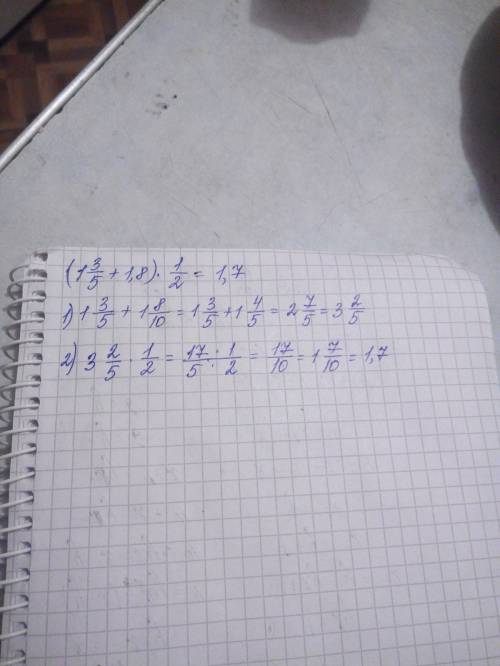 (1 3/5 + 1,8) · 1/2 = 1,7
1) 1 3/5 + 1 8/10 = 1 3/5 + 1 4/5 = 2 7/5 = 3 2/5
2) 3 2/5 · 1/2 = 17/5 · 1/2 = 17/10 = 1 7/10 = 1,7